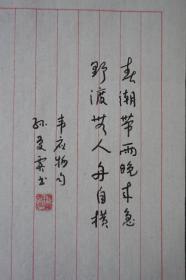 春潮带雨晚来急
野渡无人舟自横
韦应物句